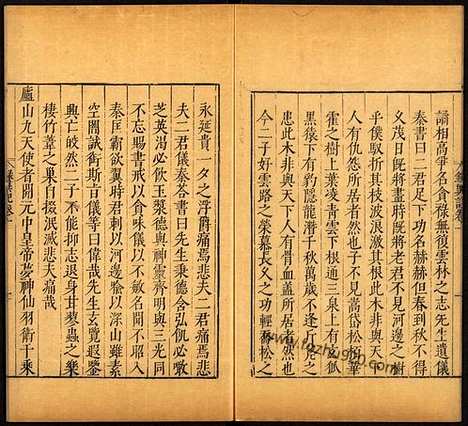 誦相高爭名貪祿無復雲林之志先生遺儀
秦書曰二君足下功名赫赫但春到秋不得
又茂日既將盡時既將老君不見河邊之樹
乎僕馭折其枝波浪盪其根此木非與天下
人有仇怨所居者然子不見嵩岱松
霍之樹上葉凌青雲下根通三泉上有
黑猿下有豹隱龍潛千秋萬歲不逢斤
患此木非與天下人有骨血蓋所居者然也
今二子好雲路之榮慕長久之功輕喬松之
永延貴一夕之浮爵痛焉悲夫二君痛焉悲
夫二君儀秦荅書曰先生秉德含弘飢必噉
芝英渴必飲玉漿德與神靈齊明與三光同
不忘賜書戒以貪味儀以不敏名聞不昭入
秦匡霸欲翼時君刺以河邊喻以深山雖素
空闇誠銜斯言儀等曰偉哉先生玄覽遐鑒
興亡皎然二子不能抑志退身甘蓼蟲之樂
棲竹葦之巢自掇泯滅悲夫痛哉
廬山九天使者開元中皇帝夢神仙羽衛千乘